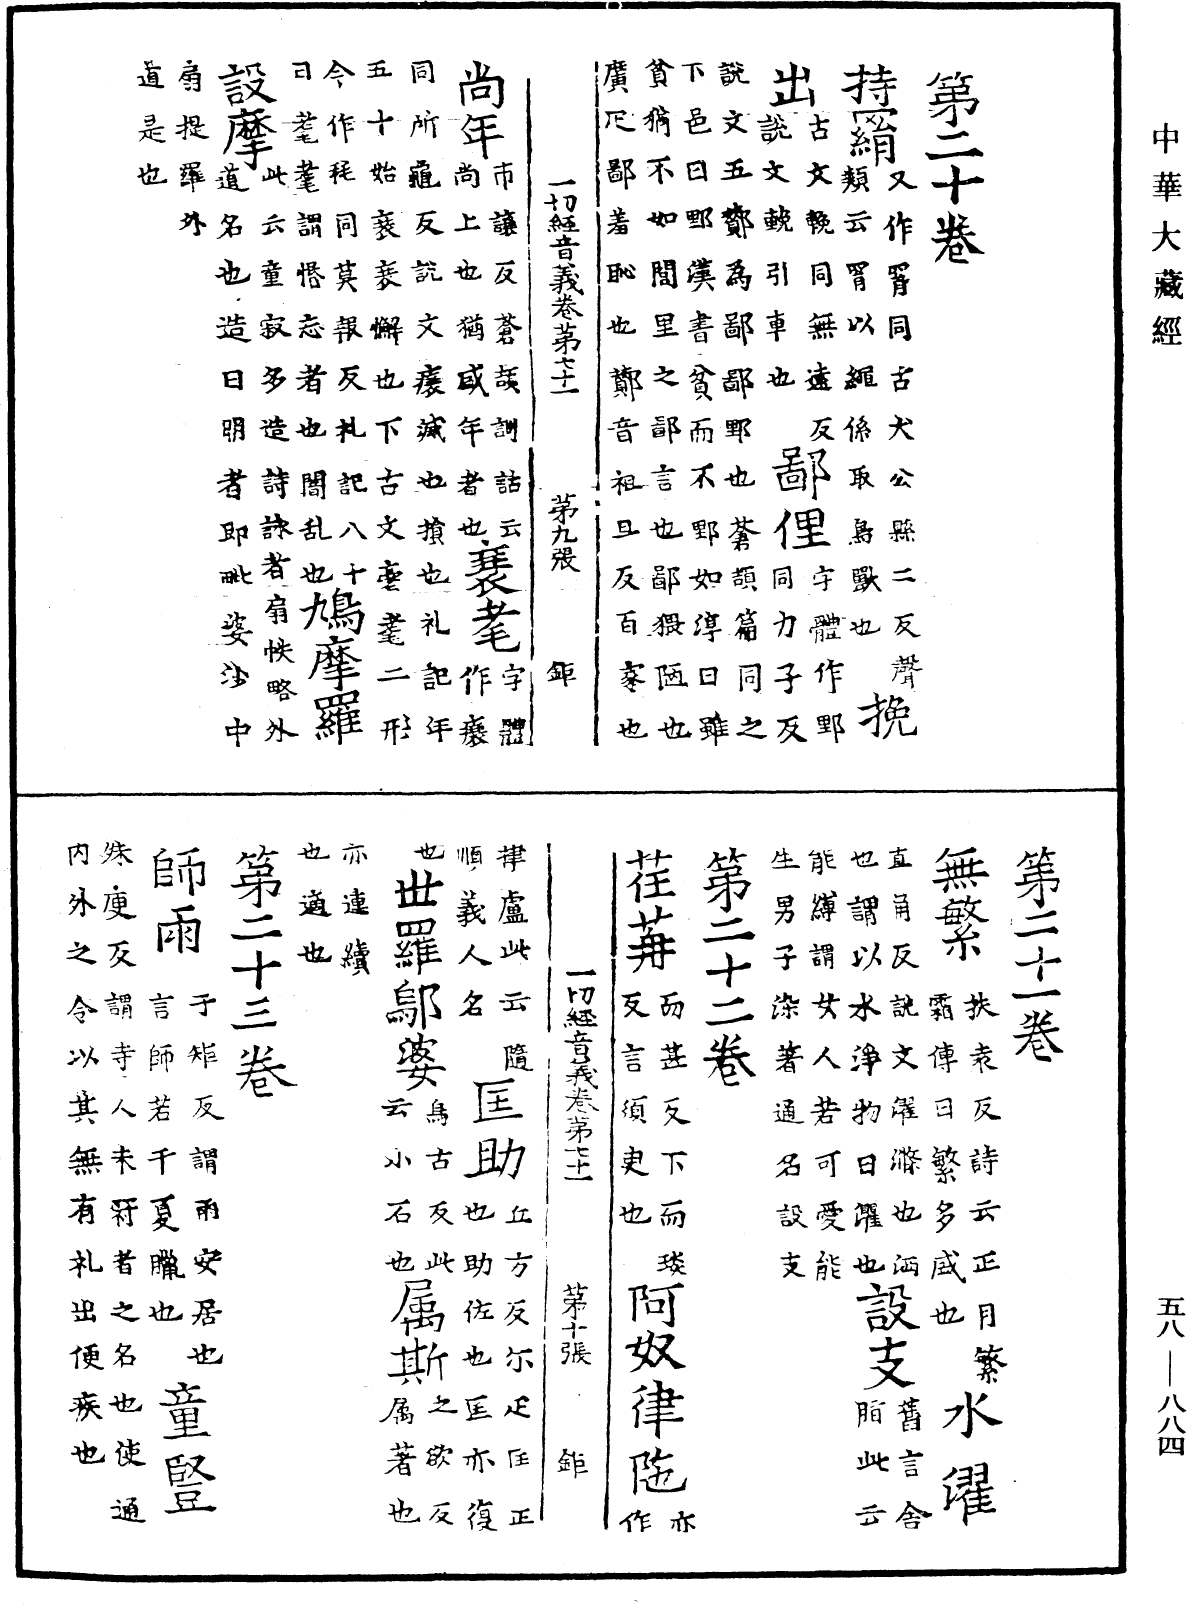 中華大藏經
第二十卷
持罥 又作罥同古犬公縣二反聲
類云罥以繩係取鳥獸也 挽
出 古文輓同無遠反
說文輓引車也 鄙俚 字體作野
同力子反
說文五酇為鄙鄙野也蒼頡篇同之
下邑曰野漢書貧而不野如淳曰雖
貧猶不如閭里之鄙言也鄙猥陋也
廣疋鄙羞恥也酇音祖旦反百家也
一切經音義卷第七十一 第九張 鉅
尚年 市讓反蒼頡訓詁云
尚上也猶盛年者也 衰耄 字體
作㾍
同所龜反說文㾍減也損也礼記年
五十始衰衰懈也下古文耄二形
今作耗同莫報反礼記八十
曰耄耄謂惛忘者也闇乱也 鳩摩羅
設摩 此云童寂多造詩詠者扇帙略外
道名也造日明者即毗婆沙中
扇提羅外
道是也
第二十一卷
無繁 扶袁反詩云正月繁
霜傳曰繁多盛也 水濯
直角反說文濯滌也洒
也謂以水淨物曰濯也 設支 舊言舍
脂此云
能縛謂女人若可愛能
生男子染著通名設支
第二十二卷
荏苒 而甚反下而琰
反言須臾也 阿奴律陁 亦
作
一切經音義卷第七十一 第十張 鉅
律盧此云隨
順義人名 匡助 丘方反尔疋匡正
也助佐也匡亦復
也 世羅鄔婆 烏古反此
云小石也 属斯 之欲反
属著也
亦連續
也適也
第二十三卷
師雨 于矩反謂雨安居也
言師若千夏臘也 童豎
殊庾反謂寺人未冠者之名也使通
內外之令以其無有礼出便疾也
五八—八八四